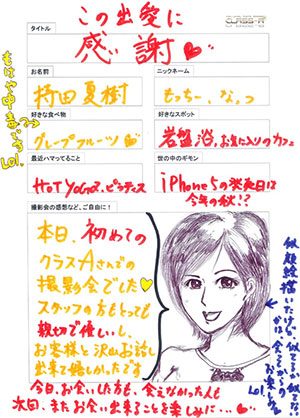 この出愛に
CLASS-A
タイトル
感謝
お名前
ニックネーム
持田夏樹
もっちー、なっつ
好きな食べ物
好きなスポット
グレープフルーツ
岩盤浴、お気に入りのカフェ
最近ハマってること
世の中のギモン
HOT YOGA、ピラティス
iPhone5の発売日は
今年の秋!?
撮影会の感想など、ご自由に!
本日、初めての
クラスAさんでの
撮影会でした
スタッフの方もとっても
親切で優しいし、
お客様と沢山お話し
出来て優しかったです
今日、お会いした方も、会えなかった人も
次回、またお会い出来ることを楽しみに...